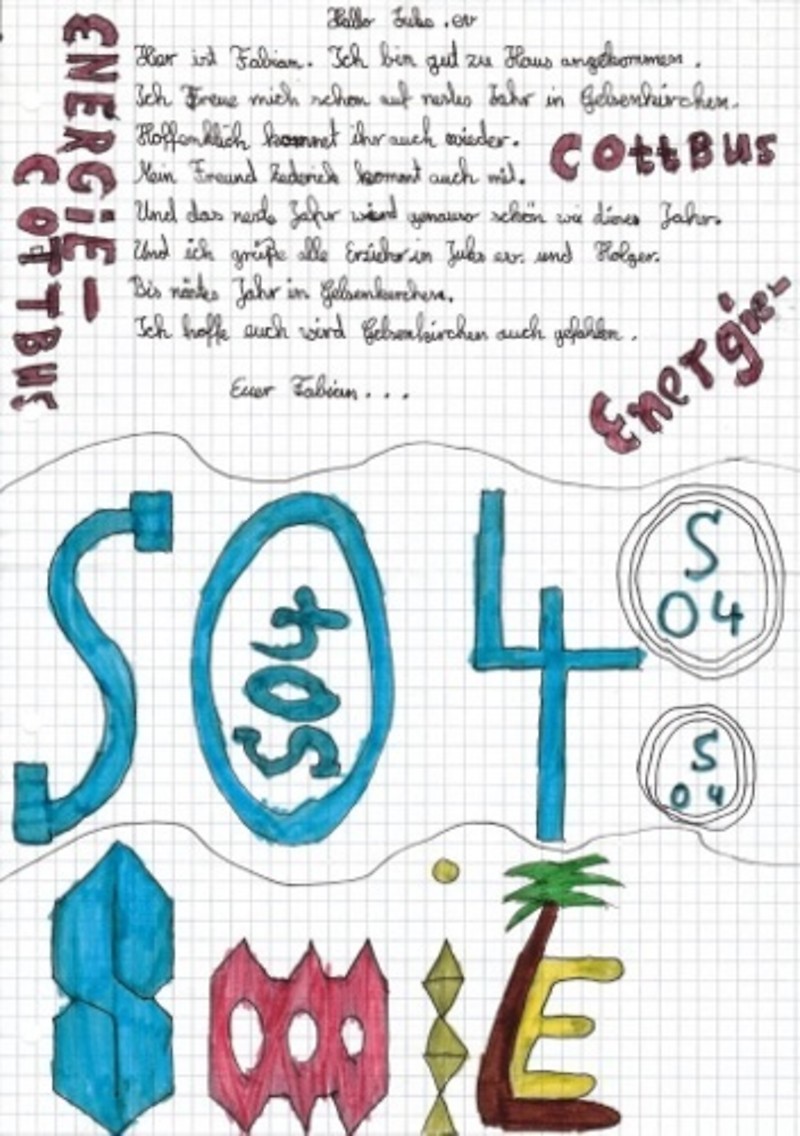 Hallo Juks .ev
Hier ist Fabian. Ich bin gut zu Haus angekommen.
Ich Freue mich schon auf nestes Jahr in Gelsenkirchen.
Hoffenklich kommet ihr auch wieder.
Mein Freund Zederick kommt auch mit.
Und das neste Jahr wird genauso schön wie dieses Jahr.
Und ich grüße alle Erzieher.in Juks ev. und Holger.
Bis nästes Jahr in Gelsenkirchen.
Ich hoffe euch wird Gelsenkirchen auch gefahlen.
Euer Fabian...
ENERGIE-
COTTBUS
CottBus
Energie-
S04
S04
S
04
S
04
SMiE